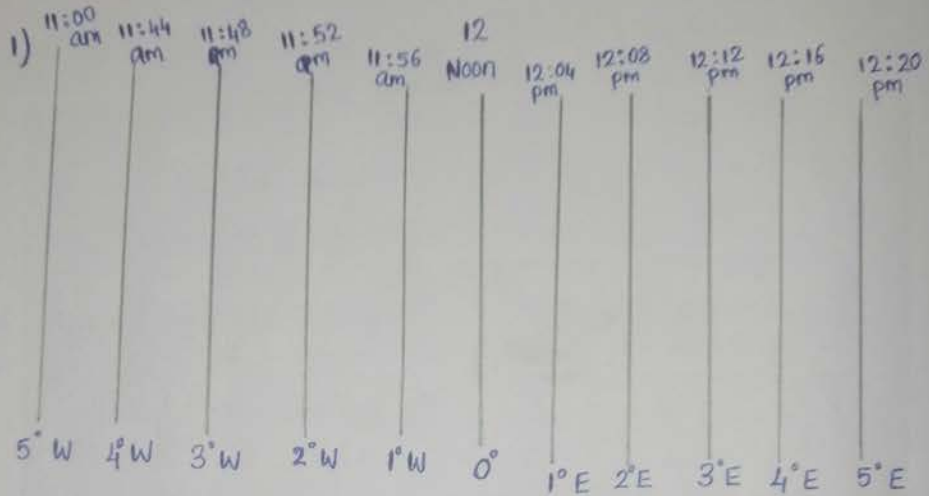 1)
11:00 am
11:44 am
11:48 am
11:52 am
11:56 am
12 Noon
12:04 pm
12:08 pm
12:12 pm
12:16 pm
12:20 pm
5° W 4° W 3° W 2° W 1° W 0° 1° E 2° E 3° E 4° E 5° E